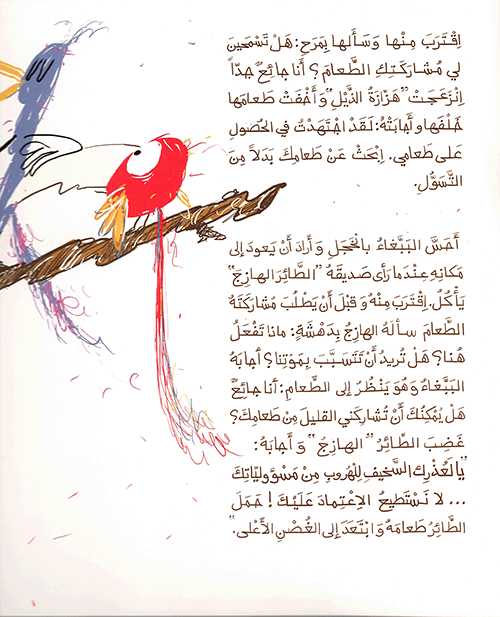 اِقْتَرَبَ مِنْها وَسَأَلَها بِمَرَحٍ: هَلْ تَسْمَحينَ
لي مُشارَكَتَكِ الطَّعامَ؟ أَنا جائِعٌ جِدّاً
اِنْزَعَجَتْ "هَزّازَةُ الذَّيْلِ" وَ أَخْفَتْ طَعامَها
خَلْفَها و أَجابَتْهُ: لَقَدْ اجْتَهَدْتُ في الحُصولِ
عَلى طَعامي. اِبْحَثْ عَنْ طَعامِكَ بَدَلاً مِنَ
التَّسَوُّلِ.
أَحَسَّ البَبَّغاءُ بِالخَجَلِ وَ أَرادَ أَنْ يَعودَ إِلى
مَكانِهِ عِنْدَما رَأى صَديقَهُ "الطّائِرَ الهازِجَ"
يَأْكُلُ. اِقْتَرَبَ مِنْهُ وَ قَبْلَ أَنْ يَطْلُبَ مُشارَكَتَهُ
الطَّعامَ سأَلهُ الهازِجُ بِدَهْشَةٍ: ماذا تَفْعَلُ
هُنا؟ هَلْ تُريدُ أَنْ تَتَسَبَّبَ بِمَوْتِنا؟ أَجابَهُ
البَبَّغاءُ وَ هُوَ يَنْظُرُ إِلى الطَّعامِ: أَنا جائِعٌ
هَلْ يُمْكِنُكَ أَنْ تُشارِكَني القليلَ مِنْ طَعامِكَ؟
غَضِبَ الطّائِرُ "الهازِجُ" وَ أَجابَهُ:
"يا لَعُذْرِكَ السَّخيفِ لِلْهُروبِ مِنْ مَسْؤوليّاتِكَ
... لا نَسْتَطيعُ الاِعْتِمادَ عَلَيْكَ! حَمَلَ
الطَّائِرُ طَعامَهُ وَ ابْتَعَدَ إِلى الغُصْنِ الأَعْلى."